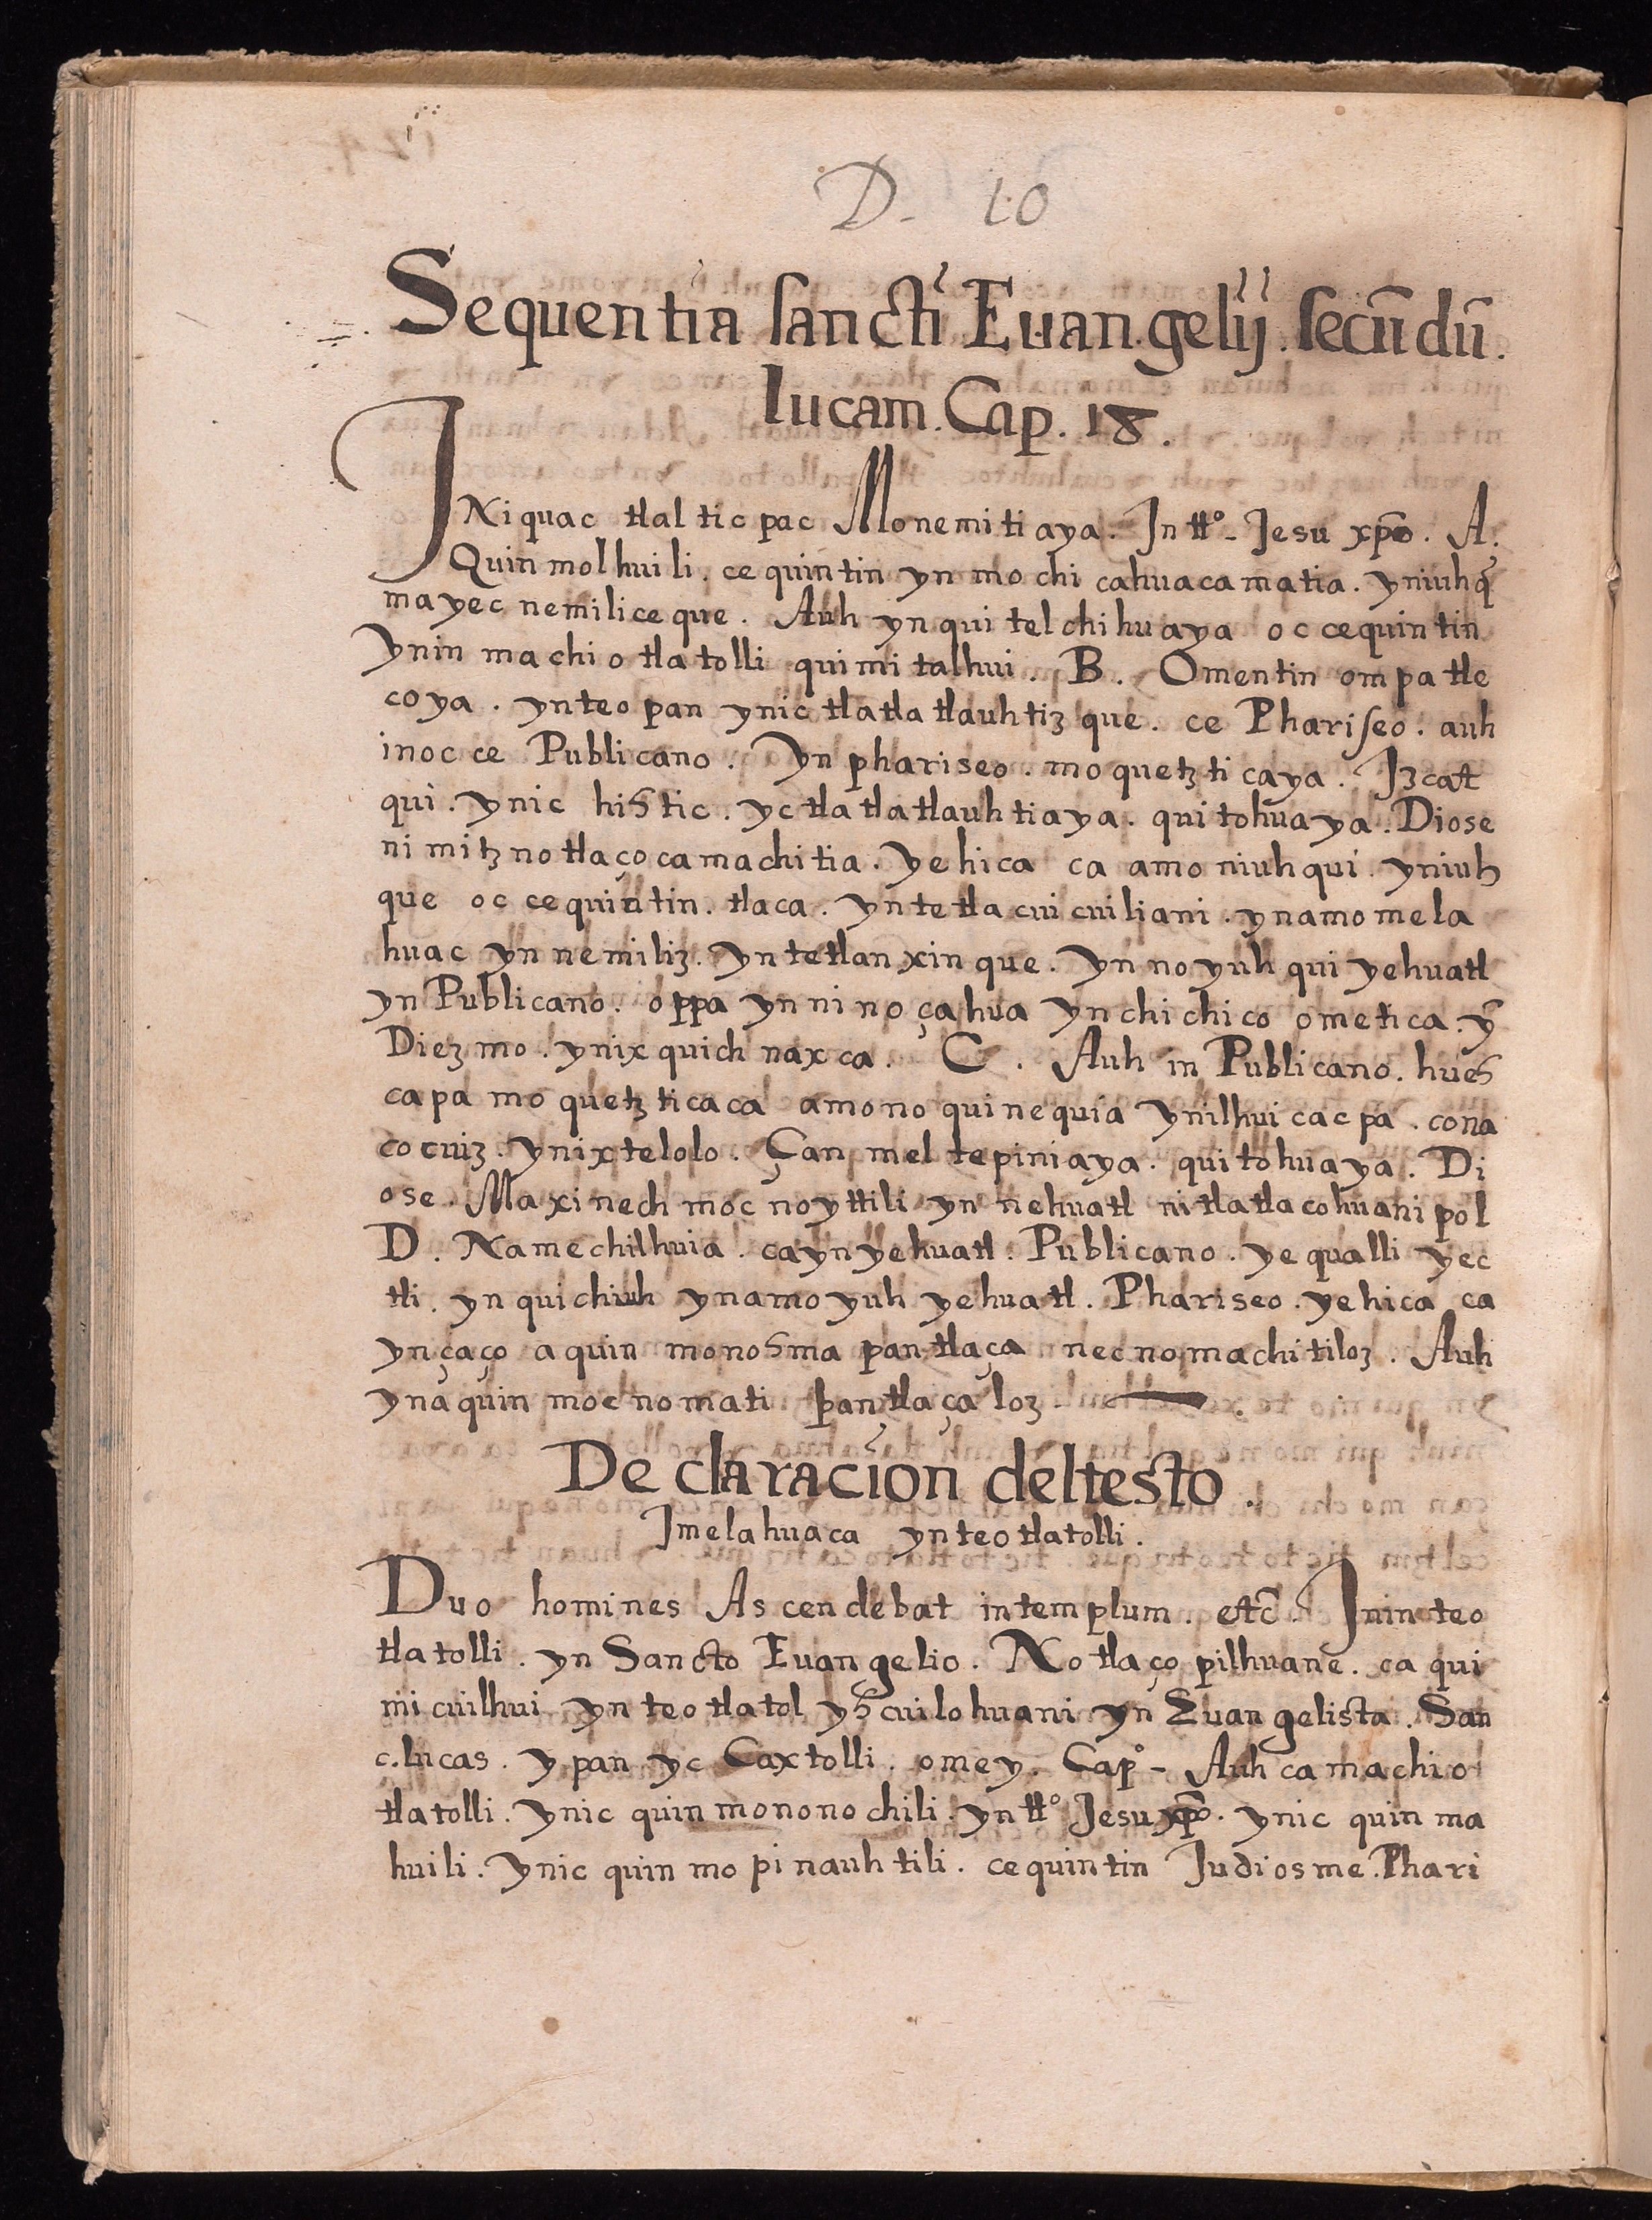 D. 10
Sequentia sancti Euangelij. secūdū.
lucam. Cap. 18.
INiquac tlal tic pac Monemiti aya. In tt°- Jesu xp̄o. A.
Quin mol hui li. ce quintin yn mo chi cahuaca matia. yniuhq̄
ma yec nemilice que. Auh yn qui tel chi hu aya oc cequin tin
ynin ma chi o tla tolli qui mi talhui. B. Omentin om pa tle
co ya. yn teo pan ynic tla tla tlauh tiz que. ce Phariseo. auh
in oc ce Publicano. Yn phariseo. mo quetz ti caya. Iz cat
qui. ynic his tic. yc tla tla tlauh tia ya. qui tohua ya. Diose
ni mitz no tlaço ca machi tia. ye hica ca amo niuh qui. yniuh
que oc ce quintin. tlaca. yn te tla cui cuiliani. ynamo me la
huac yn ne miliz. yn te tlan xin que. yn no yuh qui yehuatl
yn Publicano. oppa yn ni no çahua yn chi chi co ome ti ca. ȳ
Diez mo. ynix quich nax ca. C. Auh in Publicano. hues
ca pa mo quetz ti ca ca amo no qui ne quia ynilhui cac pa. cona
co cuiz. ynix te lolo. Çan mel te pini aya. qui to hua ya. Di
ose. Ma xi nech moc no yttili yn nehuatl ni tla tla co huani pol
D. Na mechilhuia. ca yn ye huatl. Publicano. ye qualli yec
tli. yn qui chiuh ynamo yuh ye huatl. Phariseo. ye hica ca
yn çaço a quin mo nosma pan tlaça nec no machi tiloz. Auh
yna quin moc no mati pan tla ça loz.
De claracion del testo.
Imela huaca yn teo tla tolli.
Duo homines As cendebat in templum. etc̄. Inin teo
tla tolli. yn Sancto Euangelio. No tlaço pilhuane. ca qui
mi cuilhui yn teo tla tol ys cui lo huani yn Euan gelista. San
c. lucas. y pan yc Caxtolli. omey. Cap°- Auh ca machi o
tla tolli. ynic quin mo nono chili. yn tt° Jesu xp̄o. ynic quin ma
hui li. ynic quin mo pi nauh tili. ce quin tin Judios me. Phari